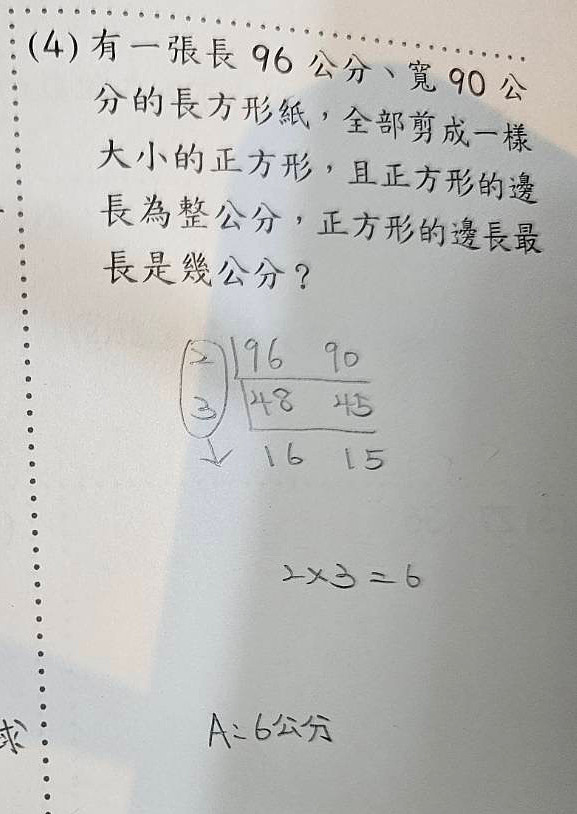 (4) 有一張長 96 公分、寬 90 公
分的長方形紙，全部剪成一樣
大小的正方形，且正方形的邊
長為整公分，正方形的邊長最
長是幾公分？
2 96 90
3 48 45
16 15
2×3=6
A:6公分
求